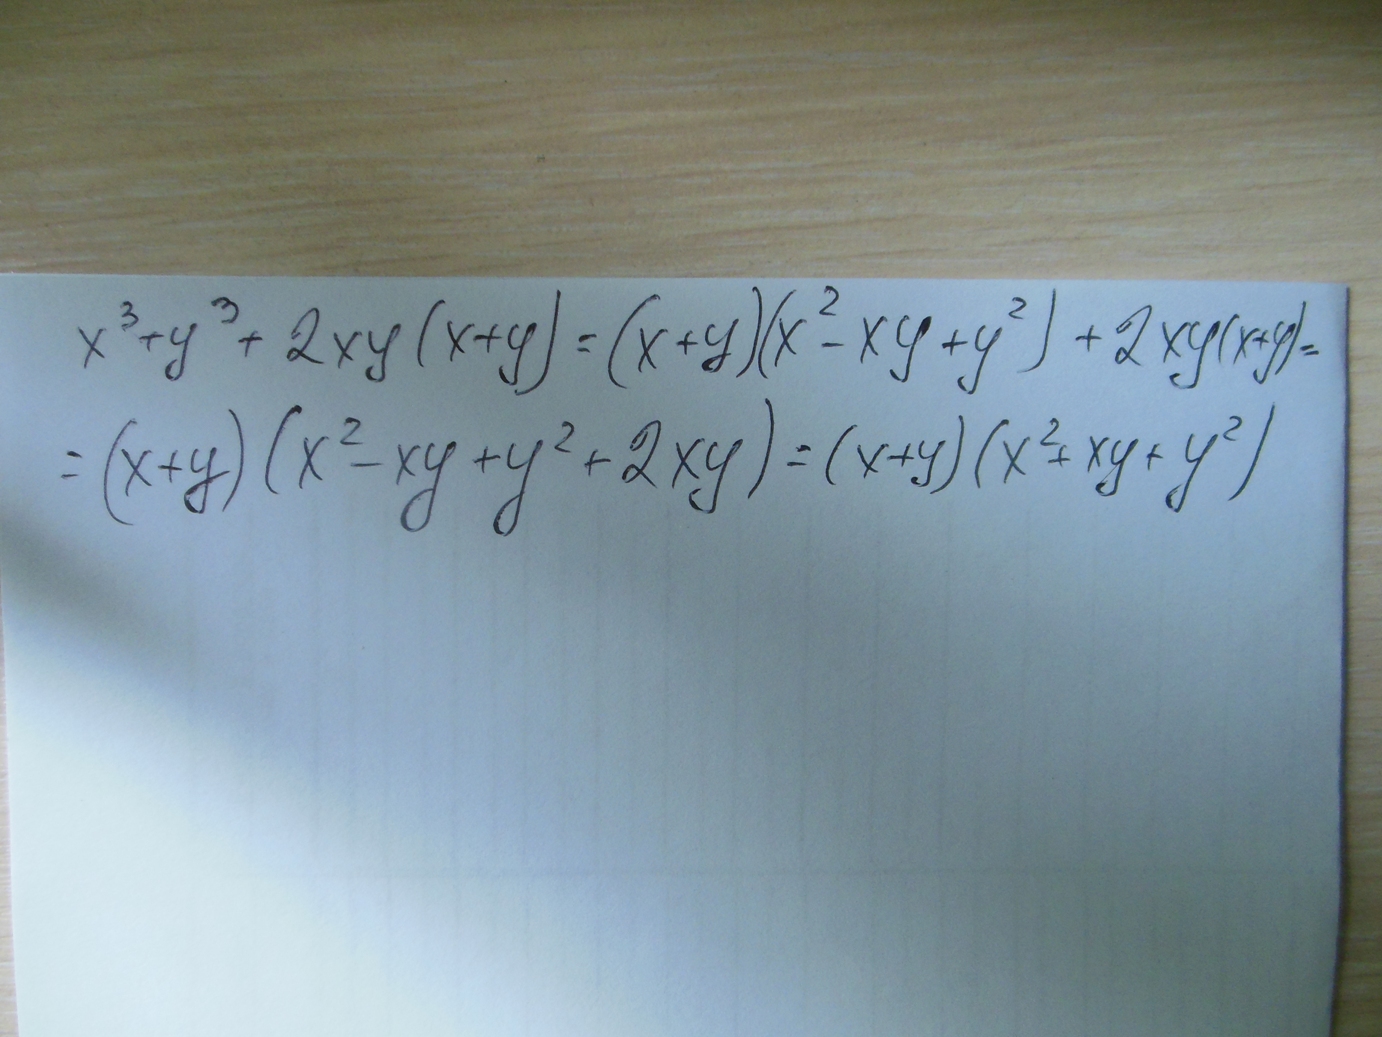 x³+y³+2xy(x+y)=(x+y)(x²-xy+y²)+2xy(x+y)=
=(x+y)(x²-xy+y²+2xy)=(x+y)(x²+xy+y²)